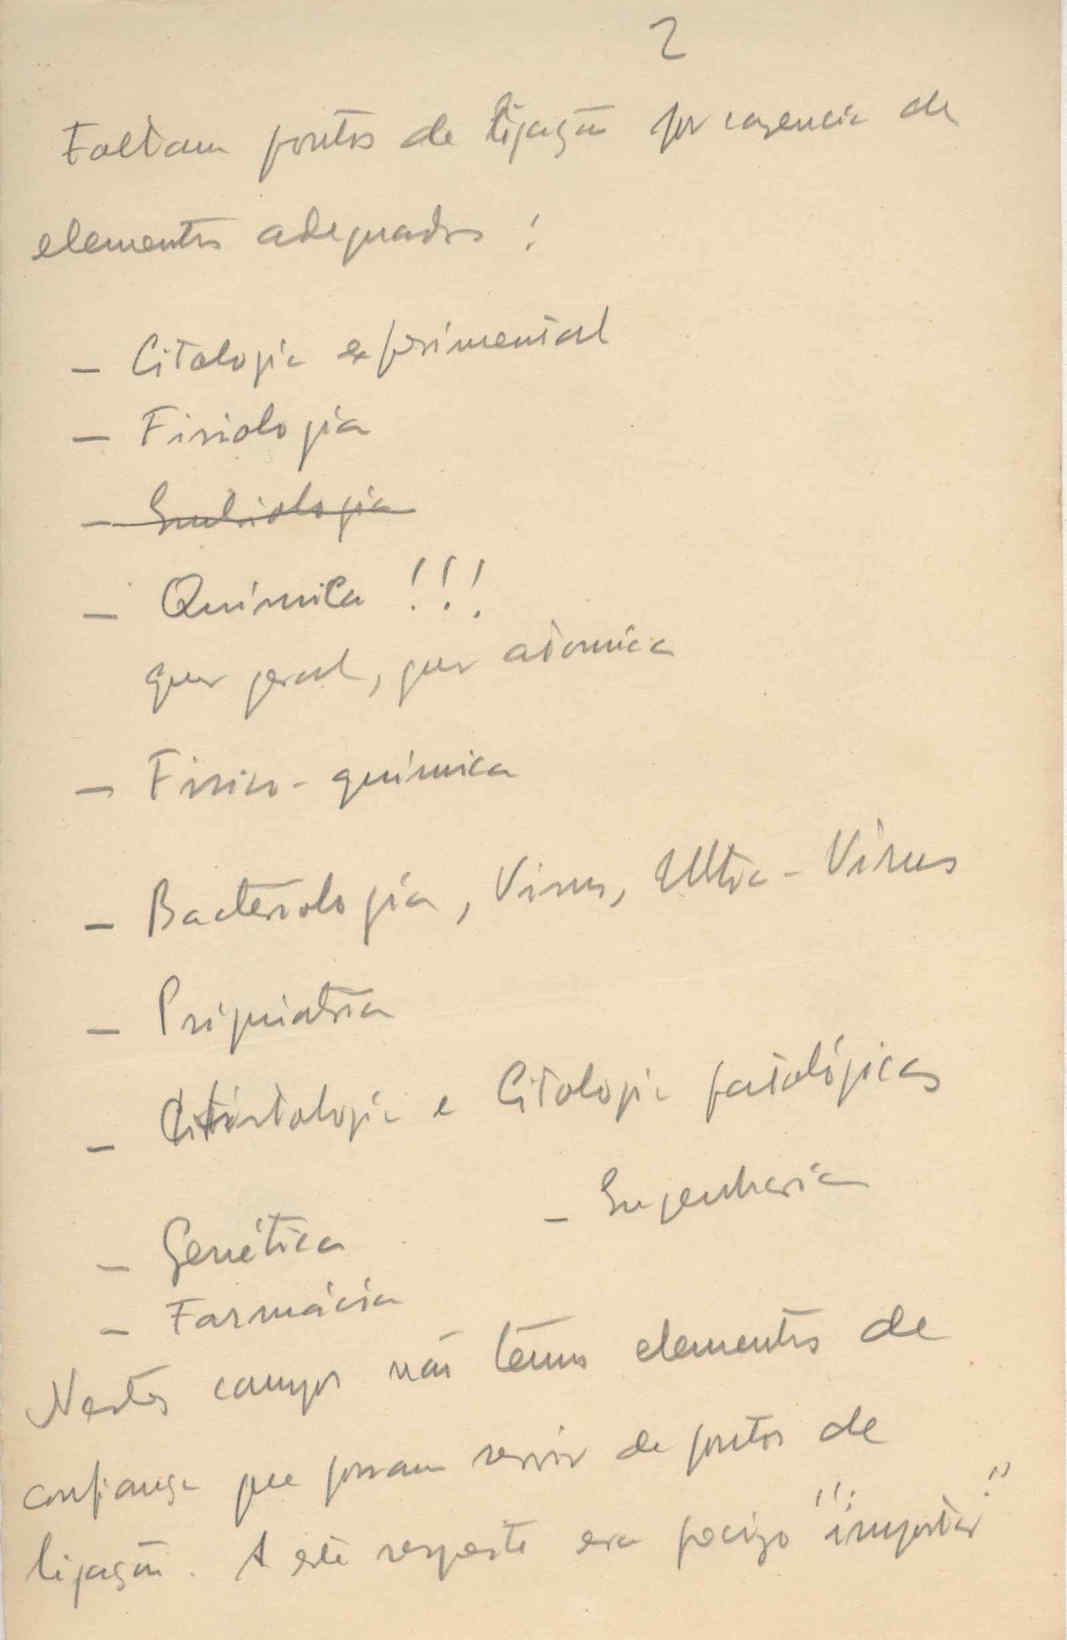 2
Faltam pontos de ligação por carencia de
elementos adequados :
– Citologia experimental
– Fisiologia
– Embriologia
– Química !!!
quer geral, quer atomica
– Fisico-química
– Bacteriologia, Virus, Ultra-Virus
– Psiquiatria
– Histologia e Citologia patológicas
– Engenharia
– Genética
– Farmácia
Nestes campos não temos elementos de
confiança que possam servir de pontos de
ligação. A este respeito era preciso "importar"